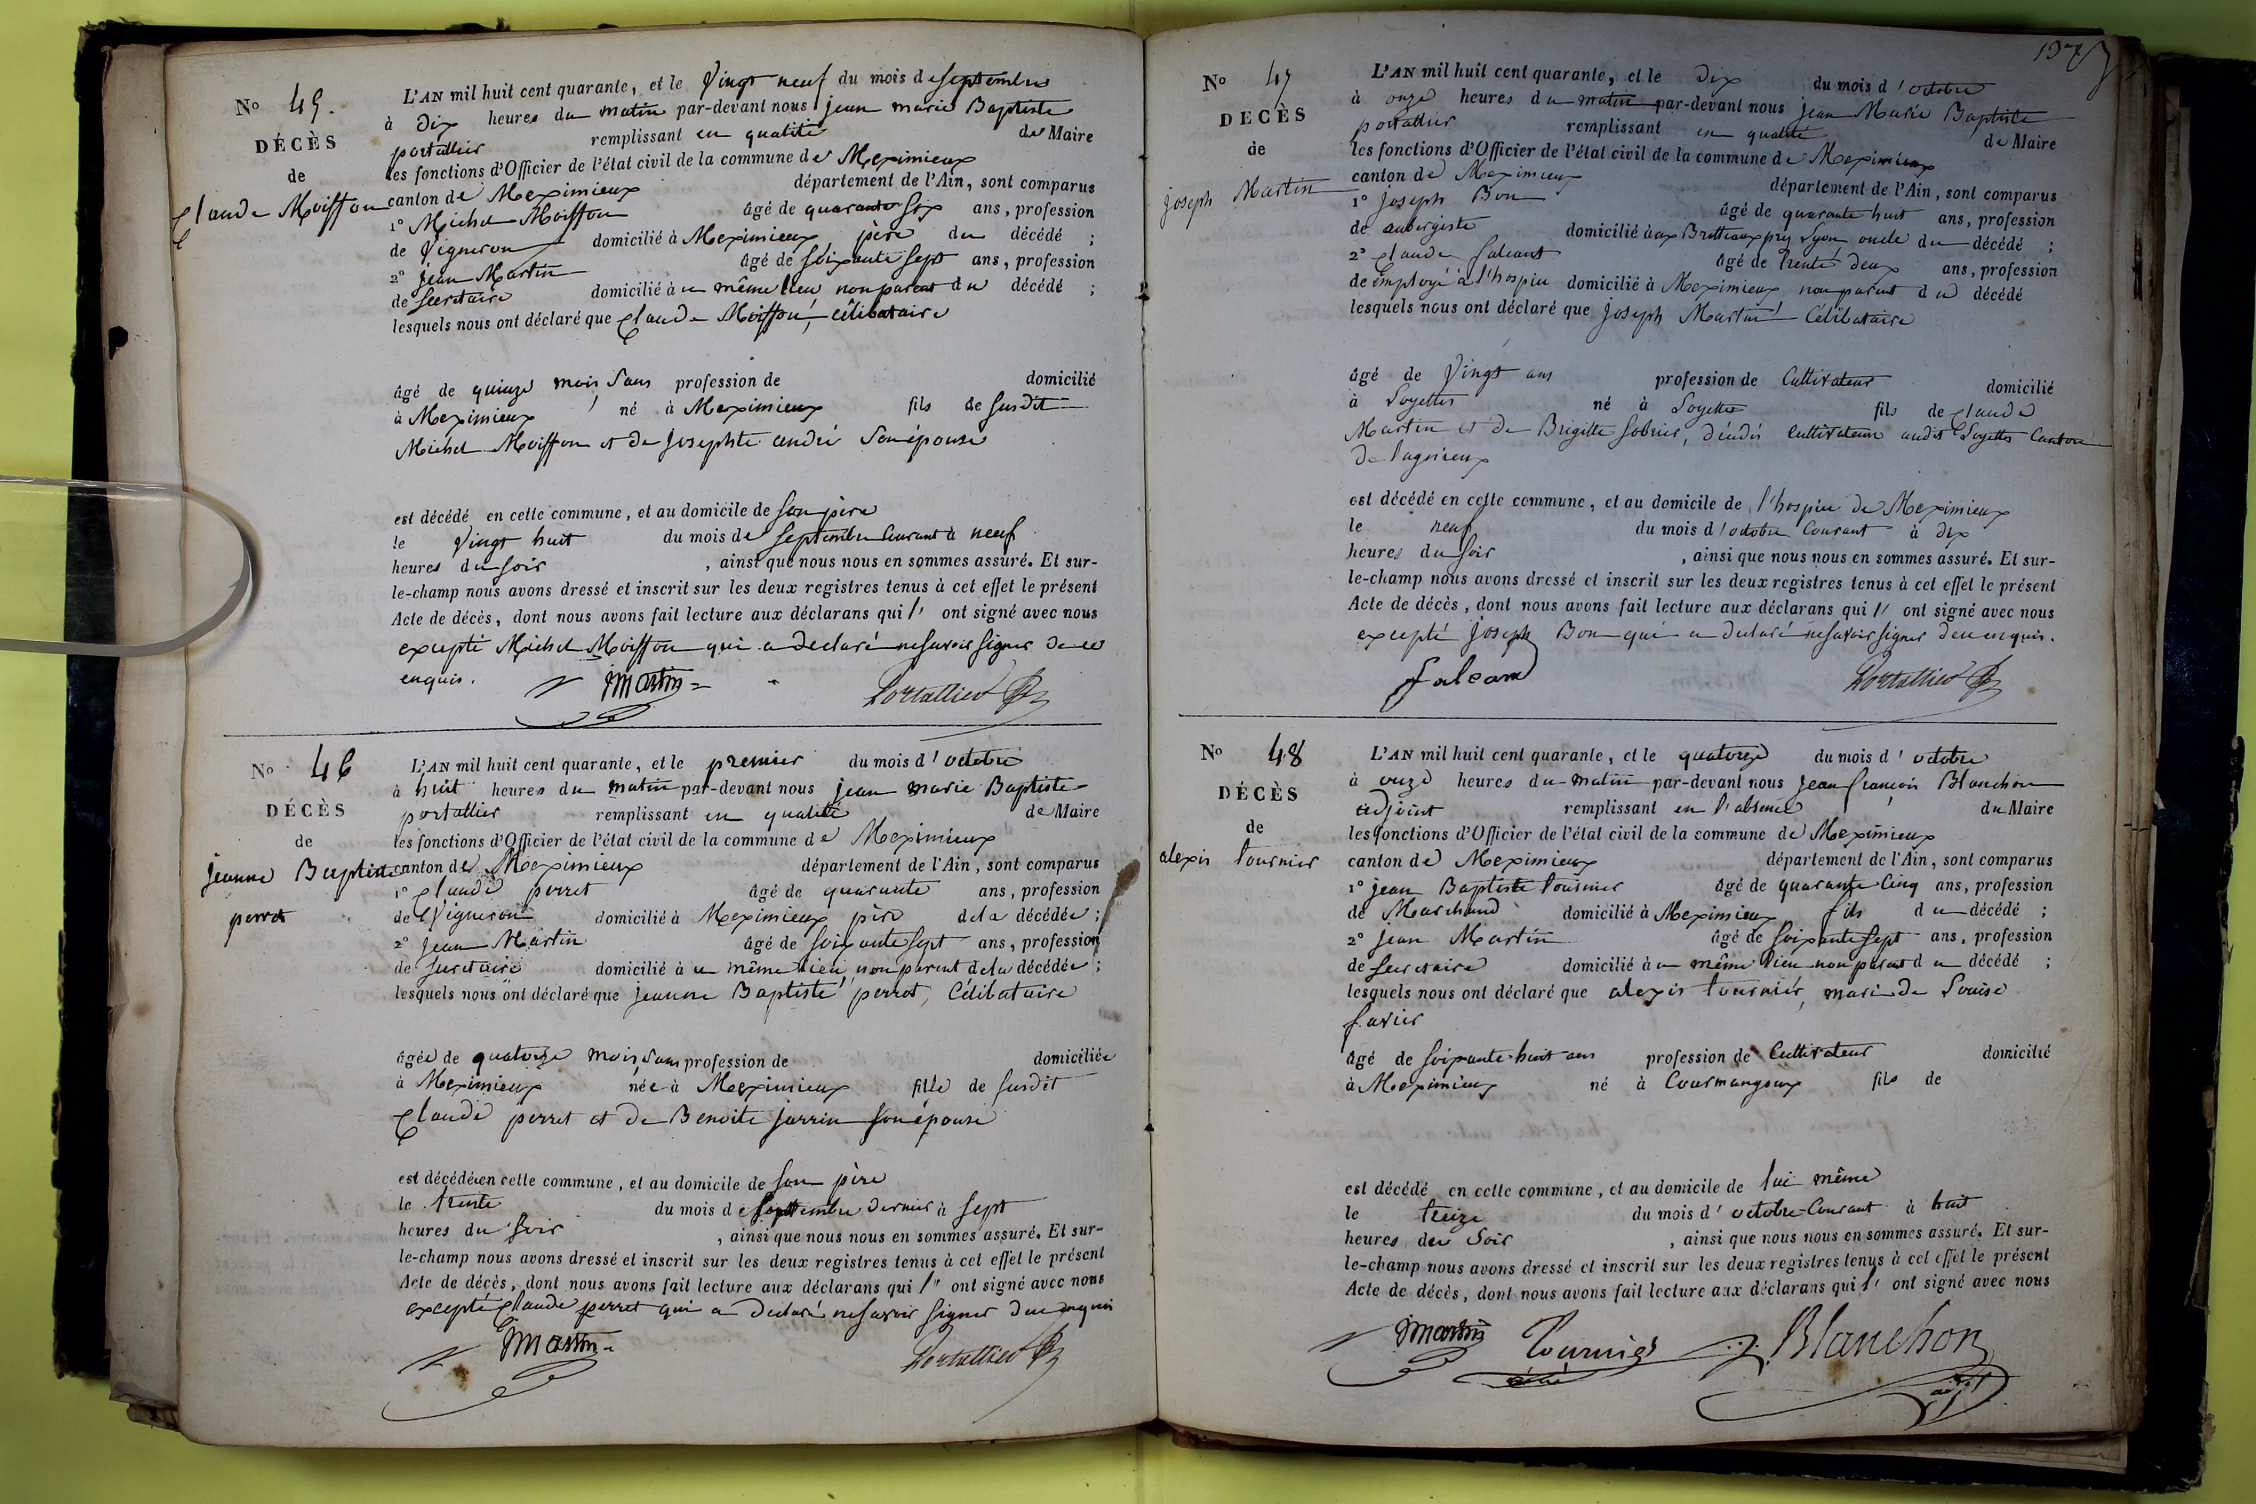 No 45.
DÉCÈS
de
Claude Moiffon
L'AN mil huit cent quarante, et le Vingt neuf du mois de Septembre
à Dix heures du matin par-devant nous jean marie Baptiste
portallier remplissant en qualité de Maire
les fonctions d'Officier de l'état civil de la commune de Meximieux
canton de Meximieux département de l'Ain, sont comparus
1° Michel Moiffon âgé de quarante six ans, profession
de Vigneron domicilié à Meximieux père du décédé ;
2° jean Martin âgé de soixante sept ans, profession
de Secretaire domicilié à u même lieu non parent du décédé ;
lesquels nous ont déclaré que Claude Moiffon, célibataire
âgé de quinze mois, sans profession de domicilié
à Meximieux né à Meximieux fils de susdit
Michel Moiffon et de josephte andré son épouse
est décédé en cette commune, et au domicile de son père
le Vingt huit du mois de Septembre Courant à neuf
heures du soir, ainsi que nous nous en sommes assuré. Et sur-
le-champ nous avons dressé et inscrit sur les deux registres tenus à cet effet le présent
Acte de décès, dont nous avons fait lecture aux déclarans qui l' ont signé avec nous
excepté Michel Moiffon qui a declaré ne savoir signer de ce
enquis.
Martin Portallier
No 46
DÉCÈS
de
jeanne Baptiste
perret
L'AN mil huit cent quarante, et le premier du mois d'octobre
à huit heures du matin par-devant nous jean marie Baptiste
portallier remplissant en qualité de Maire
les fonctions d'Officier de l'état civil de la commune de Meximieux
canton de Meximieux département de l'Ain, sont comparus
1° Claude perret âgé de quarante ans, profession
de Vigneron domicilié à Meximieux père de la décédée ;
2° jean Martin âgé de soixante sept ans, profession
de secretaire domicilié à u même lieu, non parent de la décédée ;
lesquels nous ont déclaré que jeanne Baptiste perret, Célibataire
âgée de quatorze mois, sans profession de domiciliée
à Meximieux née à Meximieux fille de susdit
Claude perret et de Benoite jarrin son épouse
est décédée en cette commune, et au domicile de son père
le trente du mois de Septembre dernier à sept
heures du soir, ainsi que nous nous en sommes assuré. Et sur-
le-champ nous avons dressé et inscrit sur les deux registres tenus à cet effet le présent
Acte de décès, dont nous avons fait lecture aux déclarans qui l' ont signé avec nous
excepté Claude perret qui a declaré ne savoir signer de ce enquis
Martin Portallier
No 47
DECÈS
de
joseph Martin
L'AN mil huit cent quarante, et le dix du mois d'octobre
à onze heures du matin par-devant nous jean Marie Baptiste
portallier remplissant en qualité de Maire
les fonctions d'Officier de l'état civil de la commune de Meximieux
canton de Meximieux département de l'Ain, sont comparus
1° joseph Bon âgé de quarante huit ans, profession
de aubergiste domicilié à aux Brotteaux près Lyon oncle du décédé ;
2° Claude falcand âgé de trente deux ans, profession
de employé à l'hospice domicilié à Meximieux non parent du décédé
lesquels nous ont déclaré que joseph Martin, Célibataire
âgé de Vingt ans profession de Cultivateur domicilié
à Loyettes né à Loyettes fils de Claude
Martin et de Brigitte Sobrier, décédés cultivateurs audit Loyettes Canton
de lagnieux
est décédé en cette commune, et au domicile de l'hospice de Meximieux
le neuf du mois d'octobre Courant à dix
heures du soir, ainsi que nous nous en sommes assuré. Et sur-
le-champ nous avons dressé et inscrit sur les deux registres tenus à cet effet le présent
Acte de décès, dont nous avons fait lecture aux déclarans qui l' ont signé avec nous
excepté joseph Bon qui a declaré ne savoir signer de ce enquis.
falcand Portallier
No 48
DÉCÈS
de
alexis tournier
L'AN mil huit cent quarante, et le quatorze du mois d'octobre
à onze heures du matin par-devant nous jean françois Blanchon
adjoint remplissant en l'absence du Maire
les fonctions d'Officier de l'état civil de la commune de Meximieux
canton de Meximieux département de l'Ain, sont comparus
1° jean Baptiste tournier âgé de quarante cinq ans, profession
de Marchand domicilié à Meximieux fils du décédé ;
2° jean Martin âgé de soixante sept ans, profession
de Secretaire domicilié à u même lieu non parent du décédé ;
lesquels nous ont déclaré que alexis tournier, mari de Louise
favier
âgé de soixante huit ans profession de Cultivateur domicilié
à Meximieux né à Courmangoux fils de
est décédé en cette commune, et au domicile de lui même
le treize du mois d'octobre Courant à huit
heures du Soir, ainsi que nous nous en sommes assuré. Et sur-
le-champ nous avons dressé et inscrit sur les deux registres tenus à cet effet le présent
Acte de décès, dont nous avons fait lecture aux déclarans qui l' ont signé avec nous
Martin Tournier J. Blanchon
adjt